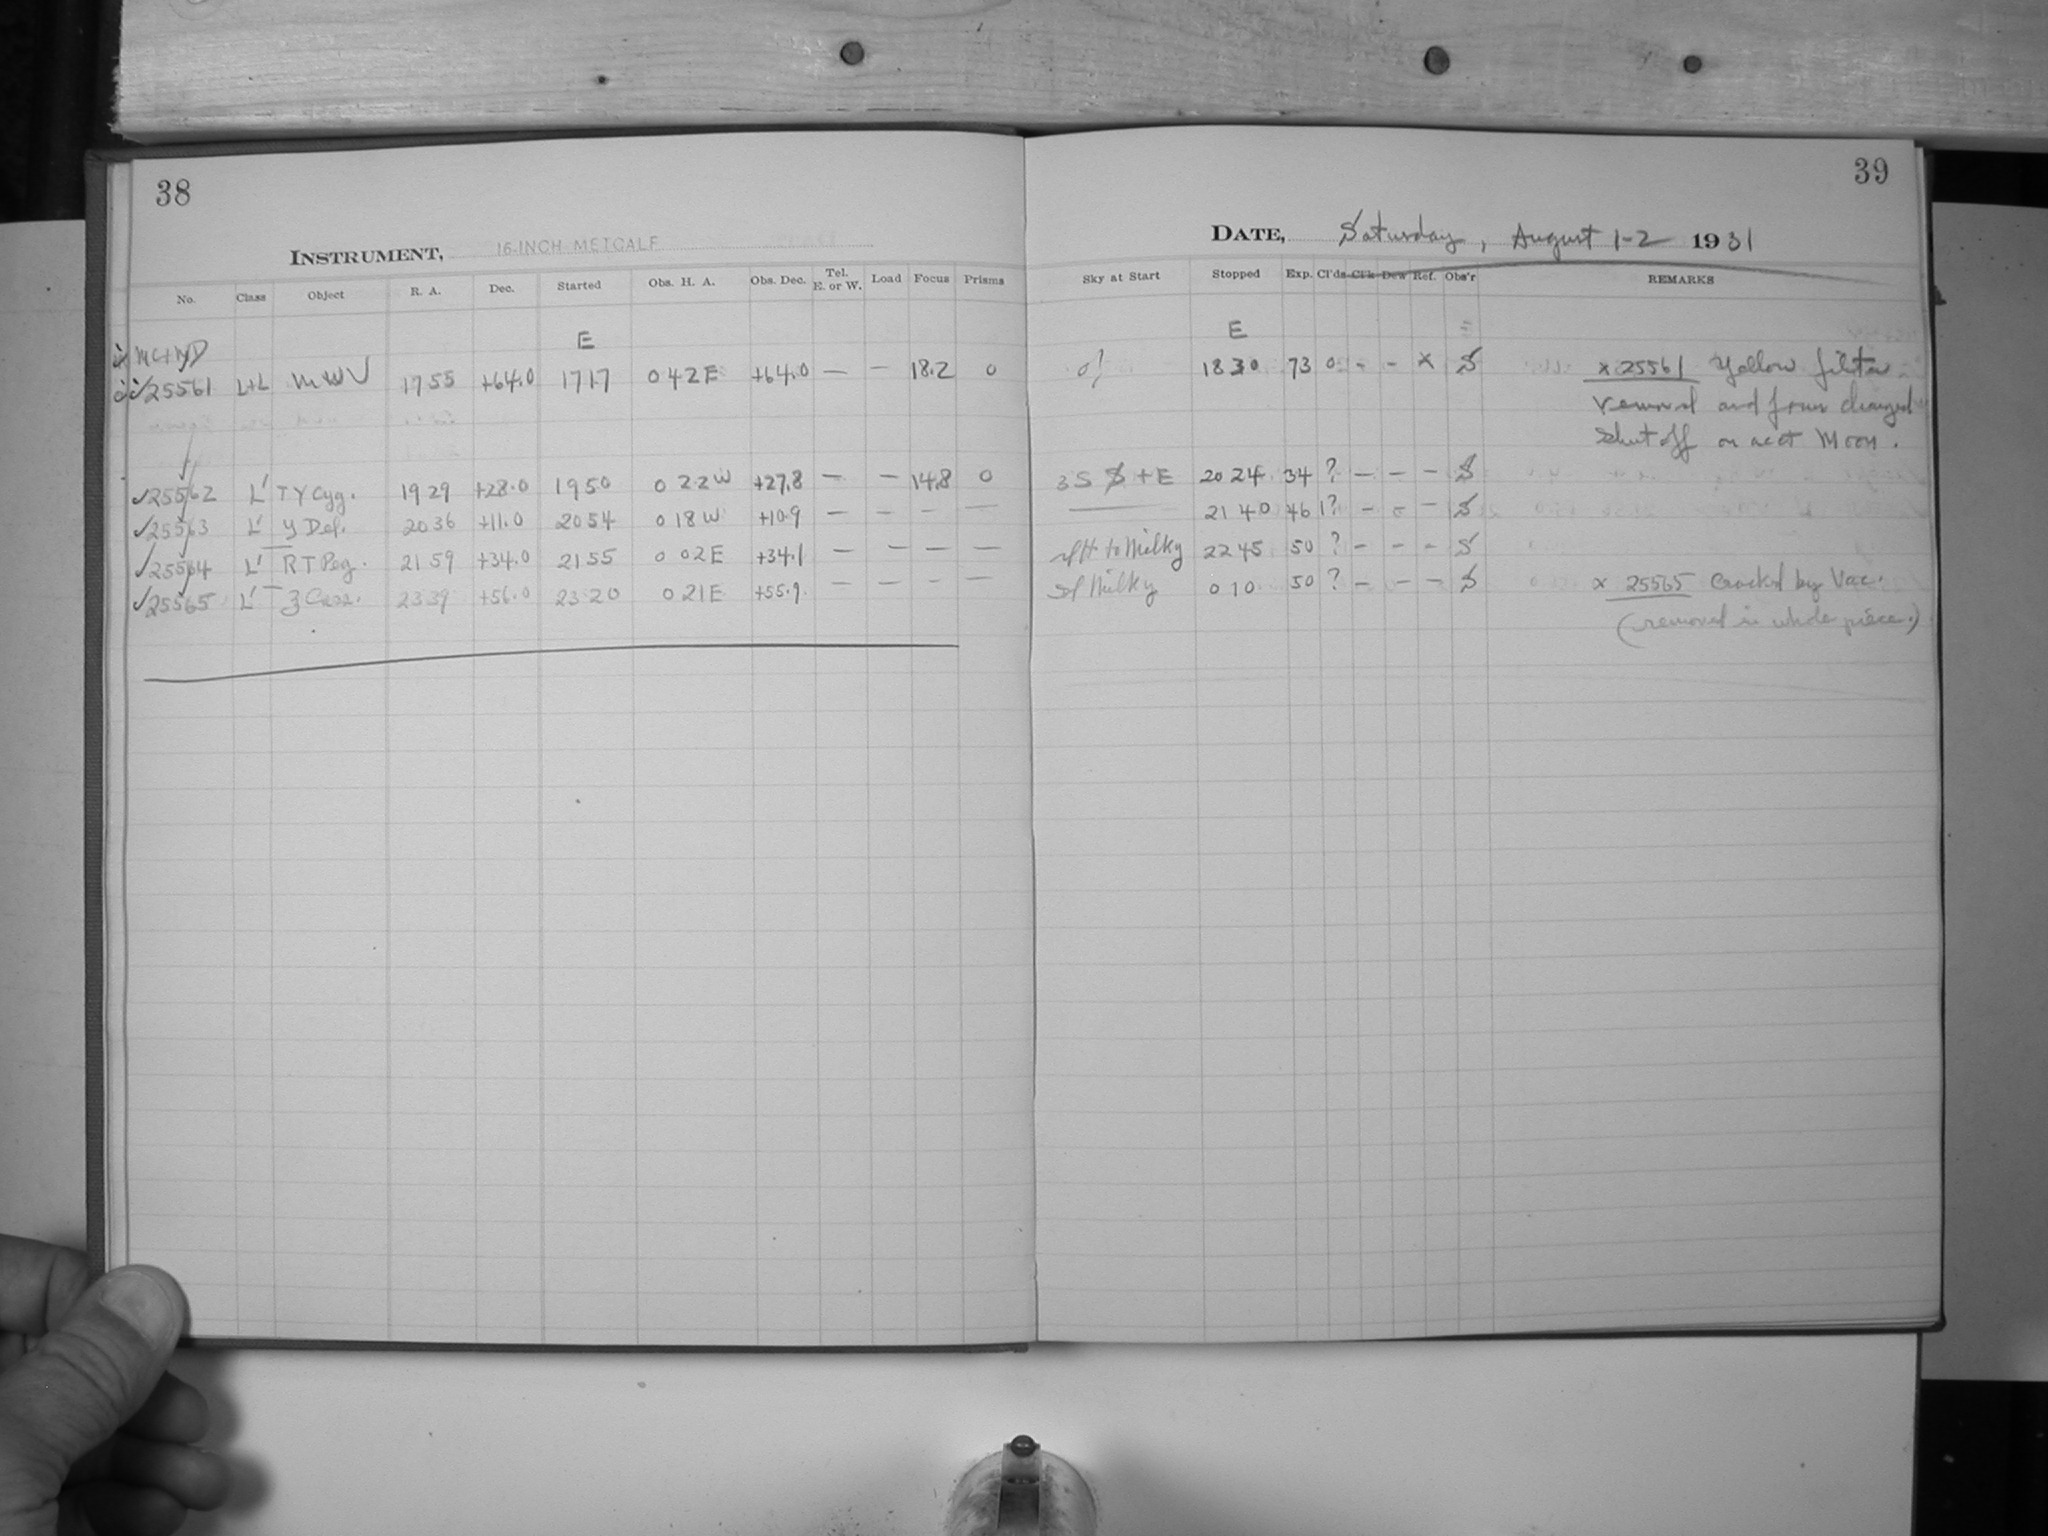 38
INSTRUMENT, 16-INCH METCALF
No. Class Object R. A. Dec. Started Obs. H. A. Obs. Dec. Tel. E. or W. Load Focus Prisms
E
25561 L+L MWV 17 55 +64.0 17 17 0 42 E +64.0 — — 18.2 0
25562 L' TY Cyg. 19 29 +28.0 19 50 0 22 W +27.8 — — 14.8 0
25563 L' Y Del. 20 36 +11.0 20 54 0 18 W +10.9 — — — —
25564 L' RT Peg. 21 59 +34.0 21 55 0 02 E +34.1 — — — —
25565 L' Z Cass. 23 39 +56.0 23 20 0 21 E +55.9 — — — —
39
DATE, Saturday, August 1-2 1931
Sky at Start Stopped Exp. Cl'ds Cl'k Dew Ref. Obs'r REMARKS
E
18 30 73 0 - - x S x 25561 Yellow filter
removed and focus changed
Shut off on acct Moon.
3S S + E 20 24 34 ? — — — S
—— 21 40 46 1? - - - S
to Milky 22 45 50 ? - - - S
Milky 0 10 50 ? — — — S x 25565 Cracked by Vac.
(removed in whole piece.)